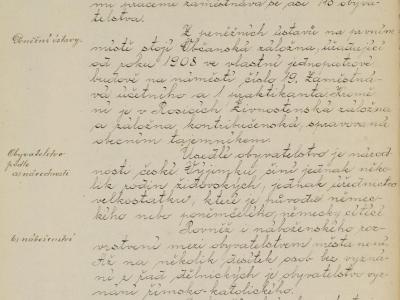 mi pracemi zaměstnává se asi 145 obyva-
telstva.
Peněžní ústavy.
Z peněžních ústavů na prvním
místě stojí Občanská záložna, úřadující
od roku 1908 ve vlastní jednopatrové
budově na náměstí číslo 19. Zaměstná-
vá účetního a 1 praktikanta. Kromě
ní je v Rosicích Živnostenská záložna
a záložna kontribučenská, spravovaná
obecním tajemníkem.
Obyvatelstvo
podle
a) národnosti
Usedlé obyvatelstvo je národ-
nosti české. Výjimku činí jednak něko-
lik rodin židovských, jednak úřednictvo
velkostatku, které je původu němec-
kého nebo poněmčelého, německy cítící.
b) náboženství
Rovněž i náboženského roz-
vrstvení mezi obyvatelstvem místa není.
Až na několik desítek osob bez vyzná-
ní z řad dělnických je obyvatelstvo vy-
znání římsko-katolického.